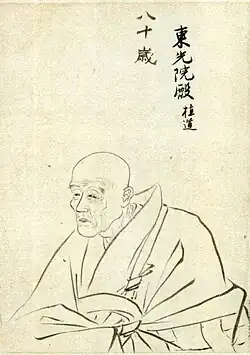 東光院殿 桂道
八十歳